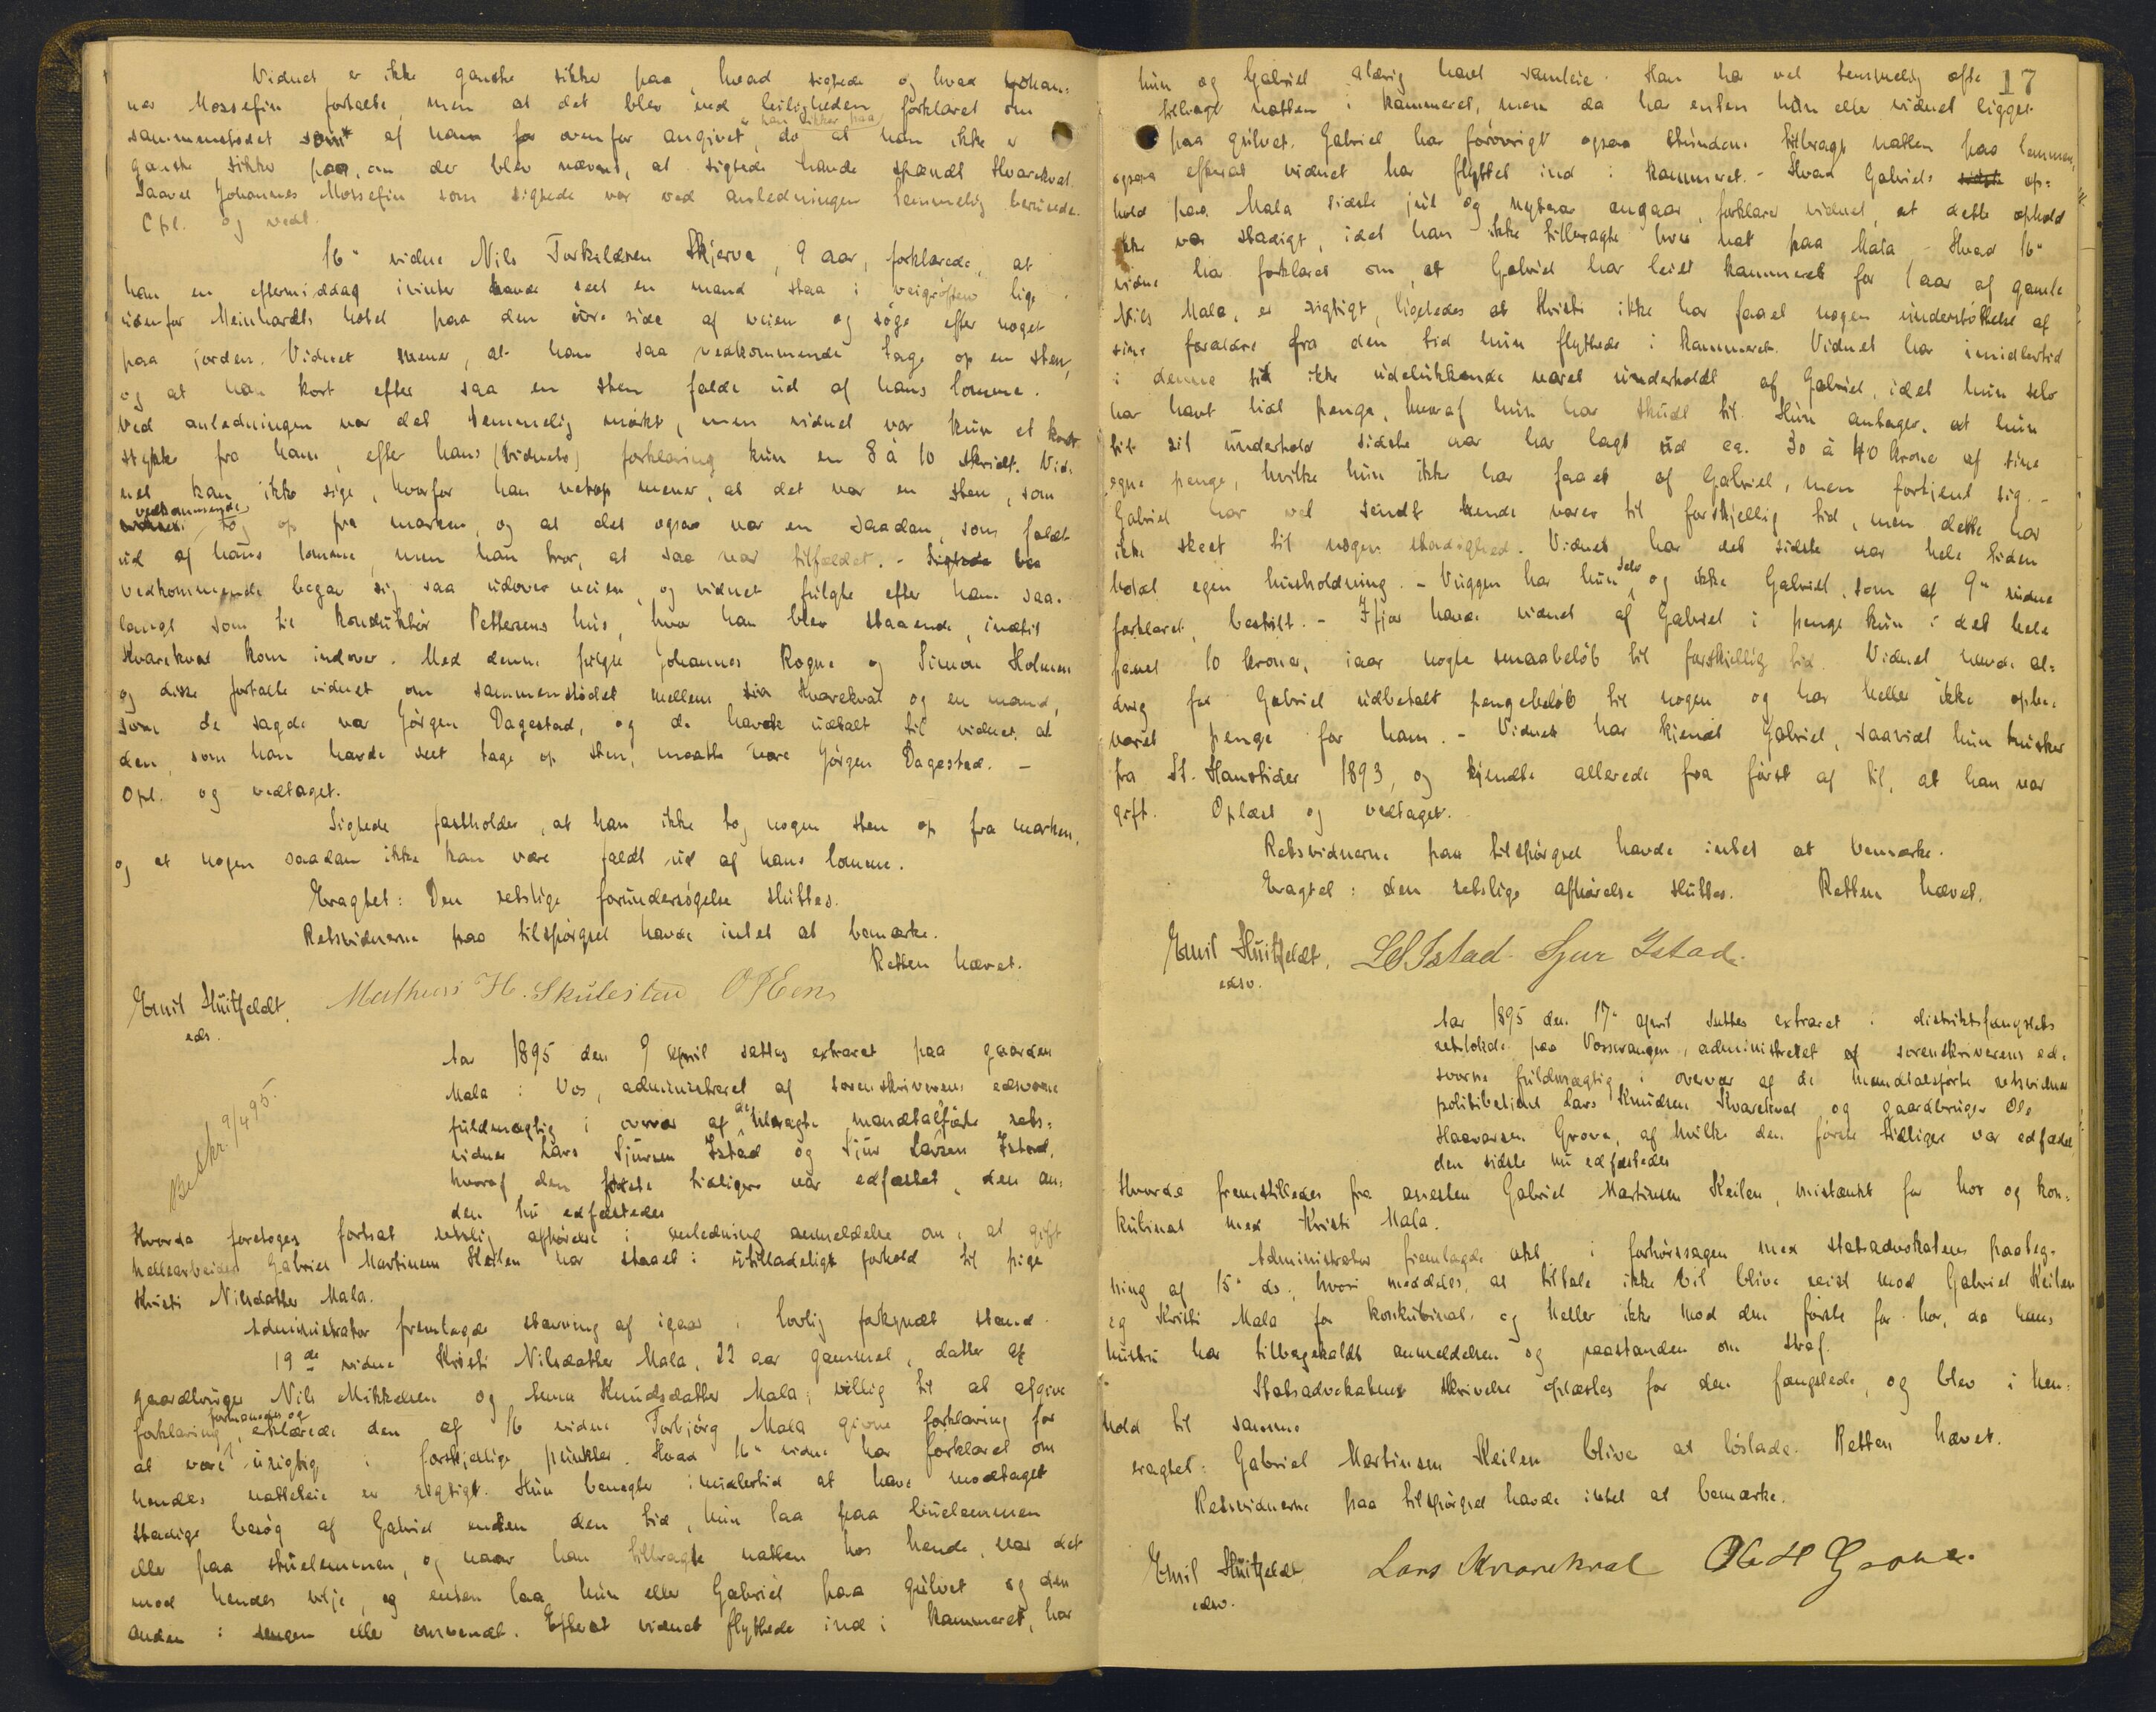 Vidnet er ikke ganske sikker paa, hvad sigtede og hvad Johan-
nes Mossefin fortalte, men at det blev ved leiligheden forklaret om
sammenstødet som af ham før ovenfor angivet, er han sikker paa do at han ikke er
ganske sikker paa, om der blev nævnt, at sigtede havde spændt Kvarekval.
Saavel Johannes Mossefin som sigtede var ved anledningen temmelig berusede.
Opl. og vedt.
16de vidne Nils Torkildsen Skjerve, 9 aar, forklarede, at
han en eftermiddag ivinter havde seet en mand staa i veigrøften lige
udenfor Meinhardts hotel paa den øvre side af veien og søge efter noget
paa jorden. Vidnet mener, at han saa vedkommende tage op en sten,
og at han kort efter saa en sten falde ud af hans lomme.
Ved anledningen var det temmelig mørkt, men vidnet var kun et kort
stykke fra ham, efter hans (vidnets) forklaring kun en 8 à 10 skridt. Vid-
net kan ikke sige, hvorfor han netop mener, at det var en sten, som
vedkommende tog op fra marken, og at det ogsaa var en saadan, som faldt
ud af hans lomme, men han tror, at saa var tilfældet. - Sigtede bee
vedkommende begav sig saa udover veien, og vidnet fulgte efter ham saa-
langt som til konduktør Pettersens hus, hvor han blev staaende, indtil
Kvarekval kom indover. Med denne fulgte Johannes Rogne og Simon Holmen
og disse fortalte vidnet om sammenstødet mellem Kvarekval og en mand,
som de sagde var Jørgen Dagestad, og de havde udtalt til vidnet, at
den, som han havde seet tage op sten, maatte være Jørgen Dagestad. -
Opl. og vedtaget.
Sigtede fastholder, at han ikke tog nogen sten op fra marken,
og at nogen saadan ikke kan være faldt ud af hans lomme.
Eragtet: Den retslige forundersøgelse sluttes.
Retsvidnerne paa tilspørgsel havde intet at bemærke.
Retten hævet.
Emil Huitfeldt, Mathias H. Skulestad
eds.
Beskr. 9/4 95.
Aar 1895 den 9 april sattes extraret paa gaarden
Mala i Vos, administreret af sorenskriverens edsvorne
fuldmægtig i overvær af de tilsagte mandtalførte rets-
vidner Lars Sjursen Istad og Sjur Larsen Istad,
hvoraf den første tidligere var edfæstet, den an-
den nu edfæstedes
Hvorda foretoges fortsat retslig afhørelse i anledning anmeldelse om, at gift
hellearbeider Gabriel Martinsen Keilen har staaet i utilladeligt forhold til pige
Kristi Nilsdatter Mala.
Administrator fremlagde stævning af igaar i lovlig forkyndt stand.
19de vidne Kristi Nilsdatter Mala, 22 aar gammel, datter af
gaardbruger Nils Mikkelsen og Anna Knudsdatter Mala, villig til at afgive
forklaring, formanedes og erklærede den af 16 vidne Torbjørg Mala givne forklaring for
at være urigtig i forskjellige punkter. Hvad 16de vidne har forklaret om
hendes natteleie er rigtigt. Hun benegter imidlertid at have modtaget
stadige besøg af Gabriel enten den tid, hun laa paa buelemmen
elle paa stuelemmen, og naar han tilbragte natten hos hende, var det
mod hendes vilje, og enten laa hun eller Gabriel paa gulvet og den
anden i sengen eller omvendt. Efterat vidnet flyttede ind i kammeret, har
17
hun og Gabriel aldrig havt samleie. Han har vel temmelig ofte
tilbragt natten i kammeret, men da har enten hun eller vidnet ligget
paa gulvet. Gabriel har forøvrigt ogsaa stundom tilbragt natten paa lemmen,
ogsaa efterat vidnet har flyttet ind i kammeret. - Hvad Gabriels sidste op-
hold paa Mala sidste jul og nytaar angaar, forklarer vidnet, at dette ophold
ikke var stadigt, idet han ikke tilbragte hver nat paa Mala. - Hvad 16de
vidne har forklaret om, at Gabriel har leiet kammeret for 1 aar af gamle
Nils Mala, er rigtigt, ligeledes at Kristi ikke har faaet nogen understøttelse af
sine forældre fra den tid hun flyttede i kammeret. Vidnet har imidlertid
i denne tid ikke udelukkende været underholdt af Gabriel, idet hun selv
har havt lidt penge, hvoraf hun har skudt til. Hun antager, at hun
til sit underhold sidste aar har lagt ud ca. 30 à 40 krone af sine
egne penge, hvilke hun ikke har faaet af Gabriel, men fortjent sig. -
Gabriel har vel sendt hende varer til forskjellig tid, men dette har
ikke skeet til nogen stadighed. Vidnet har det sidste aar hele tiden
holdt egen husholdning. - Vuggen har hun selv og ikke Gabriel, som af 9de vidne
forklaret, bestilt. - Ifjor havde vidnet af Gabriel i penge kun i det hele
faaet 10 kroner, iaar nogle smaabeløb til forskjellig tid. Vidnet havde al-
drig for Gabriel udbetalt pengebeløb til nogen og har heller ikke opbe-
varet penge for ham. - Vidnet har kjendt Gabriel, saavidt hun husker
fra St. Hanstider 1893, og kjendte allerede fra først af til, at han var
gift. Oplæst og vedtaget.
Retsvidnerne paa tilspørgsel havde intet at bemærke.
Eragtet: den retslige afhørelse sluttes. Retten hævet.
Emil Huitfeldt, LS Istad Sjur Istad.
edsv.
Aar 1895 den 17de april sattes extraret i distriktsfængslets
retslokale paa Vossevangen, administreret af sorenskriverens ed-
svorne fuldmægtig i overvær af de mandtalsførte retsvidner
politibetjent Lars Knudsen Kvarekval og gaardbruger Ole
Haavarsen Grove, af hvilke den første tidligere var edfæstet,
den sidste nu edfæstedes
Hvorda fremstilledes fra arresten Gabriel Martinsen Keilen, mistænkt for hor og kon-
kubinat med Kristi Mala.
Administrator fremlagde akt i forhørssagen med statsadvokatens paateg-
ning af 15de ds., hvori meddeles, at tiltale ikke vil blive reist mod Gabriel Keilen
og Kristi Mala for konkubinat, og heller ikke mod den første for hor, da hans
hustru har tilbagekaldt anmeldelsen og paastanden om straf.
Statsadvokatens skrivelse oplæstes for den fængslede, og blev i hen-
hold til samme
eragtet: Gabriel Martinsen Keilen blive at løslade. Retten hævet.
Retsvidnerne paa tilspørgsel havde intet at bemærke.
Emil Huitfeldt Lars Kvarekval Ole H Grove.
edsv.